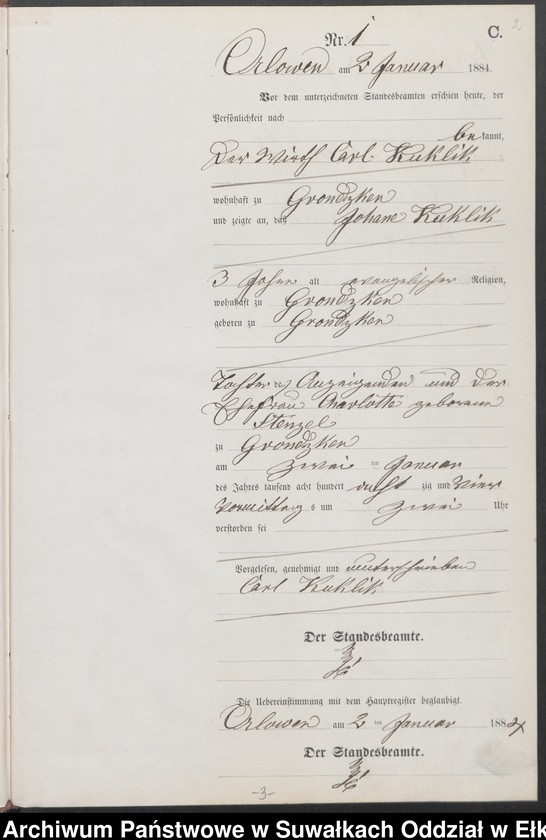 C. 2
Nr. 1
Orlowen am 2 Januar 1884.
Vor dem unterzeichneten Standesbeamten erschien heute, der
Persönlichkeit nach
bekannt,
Der Wirth Carl Kuklik
wohnhaft zu Grondzken
und zeigte an, daß Johane Kuklik
3 Jahre alt evangelischer Religion,
wohnhaft zu Grondzken
geboren zu Grondzken
Tochter Anzeigenden und der
Ehefrau Charlotte geborene
Stenzel
zu Grondzken
am zwei ten Januar
des Jahres tausend acht hundert acht zig und vier
Vormittag s um zwei Uhr
verstorben sei
Vorgelesen, genehmigt und unterschrieben
Carl Kuklik
Der Standesbeamte.
Die Uebereinstimmung mit dem Hauptregister beglaubigt.
Orlowen am 2 ten Januar 1884
Der Standesbeamte.
-3-
Archiwum Państwowe w Suwałkach Oddział w Ełk